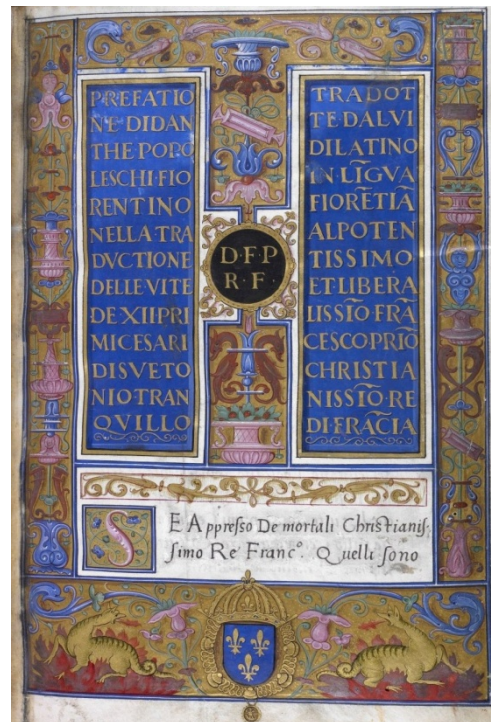 PREFATIO
NE·DI·DAN
THE·POPO
LESCHI·FIO
RENTINO
NELLA·TRA
DVCTIONE
DELLE·VITE
DE·XII·PRI
MI·CESARI
DI·SVETO
NIO·TRAN
QVILLO
D·F·P
R·F·
TRADOT
TE·DA·LVI
DI·LATINO
IN·LĪGVA
FIORĒTIĀ
AL·POTEN
TISSIMO
ET·LIBERA
LISSĪO·FRĀ
CESCO·PRIŌ
CHRISTIA
NISSĪO·RE
DI·FRĀCIA
SE Appresso De mortali Christianis-
simo Re Francº. Quelli sono